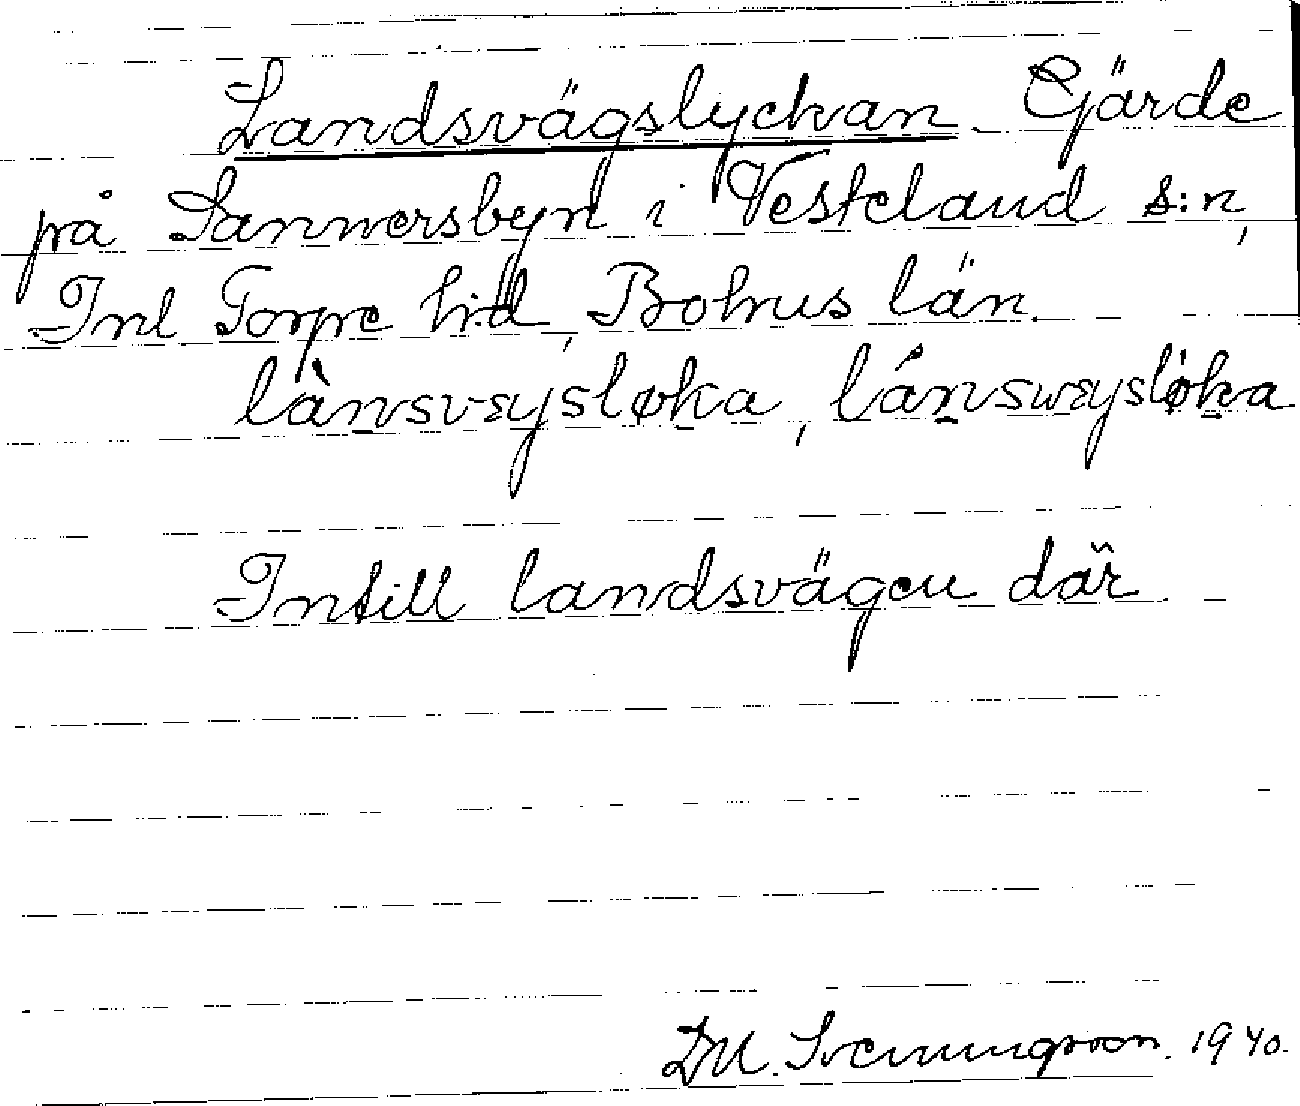 Landsvägslyckan. Gärde
på Sannersbyn i Vesteland s:n,
Inl Torpe h:d, Bohus län.
lànsvɛjsløka, lánsvɛjslòka
Intill landsvägen där
D.U. Svenningsson. 1940.